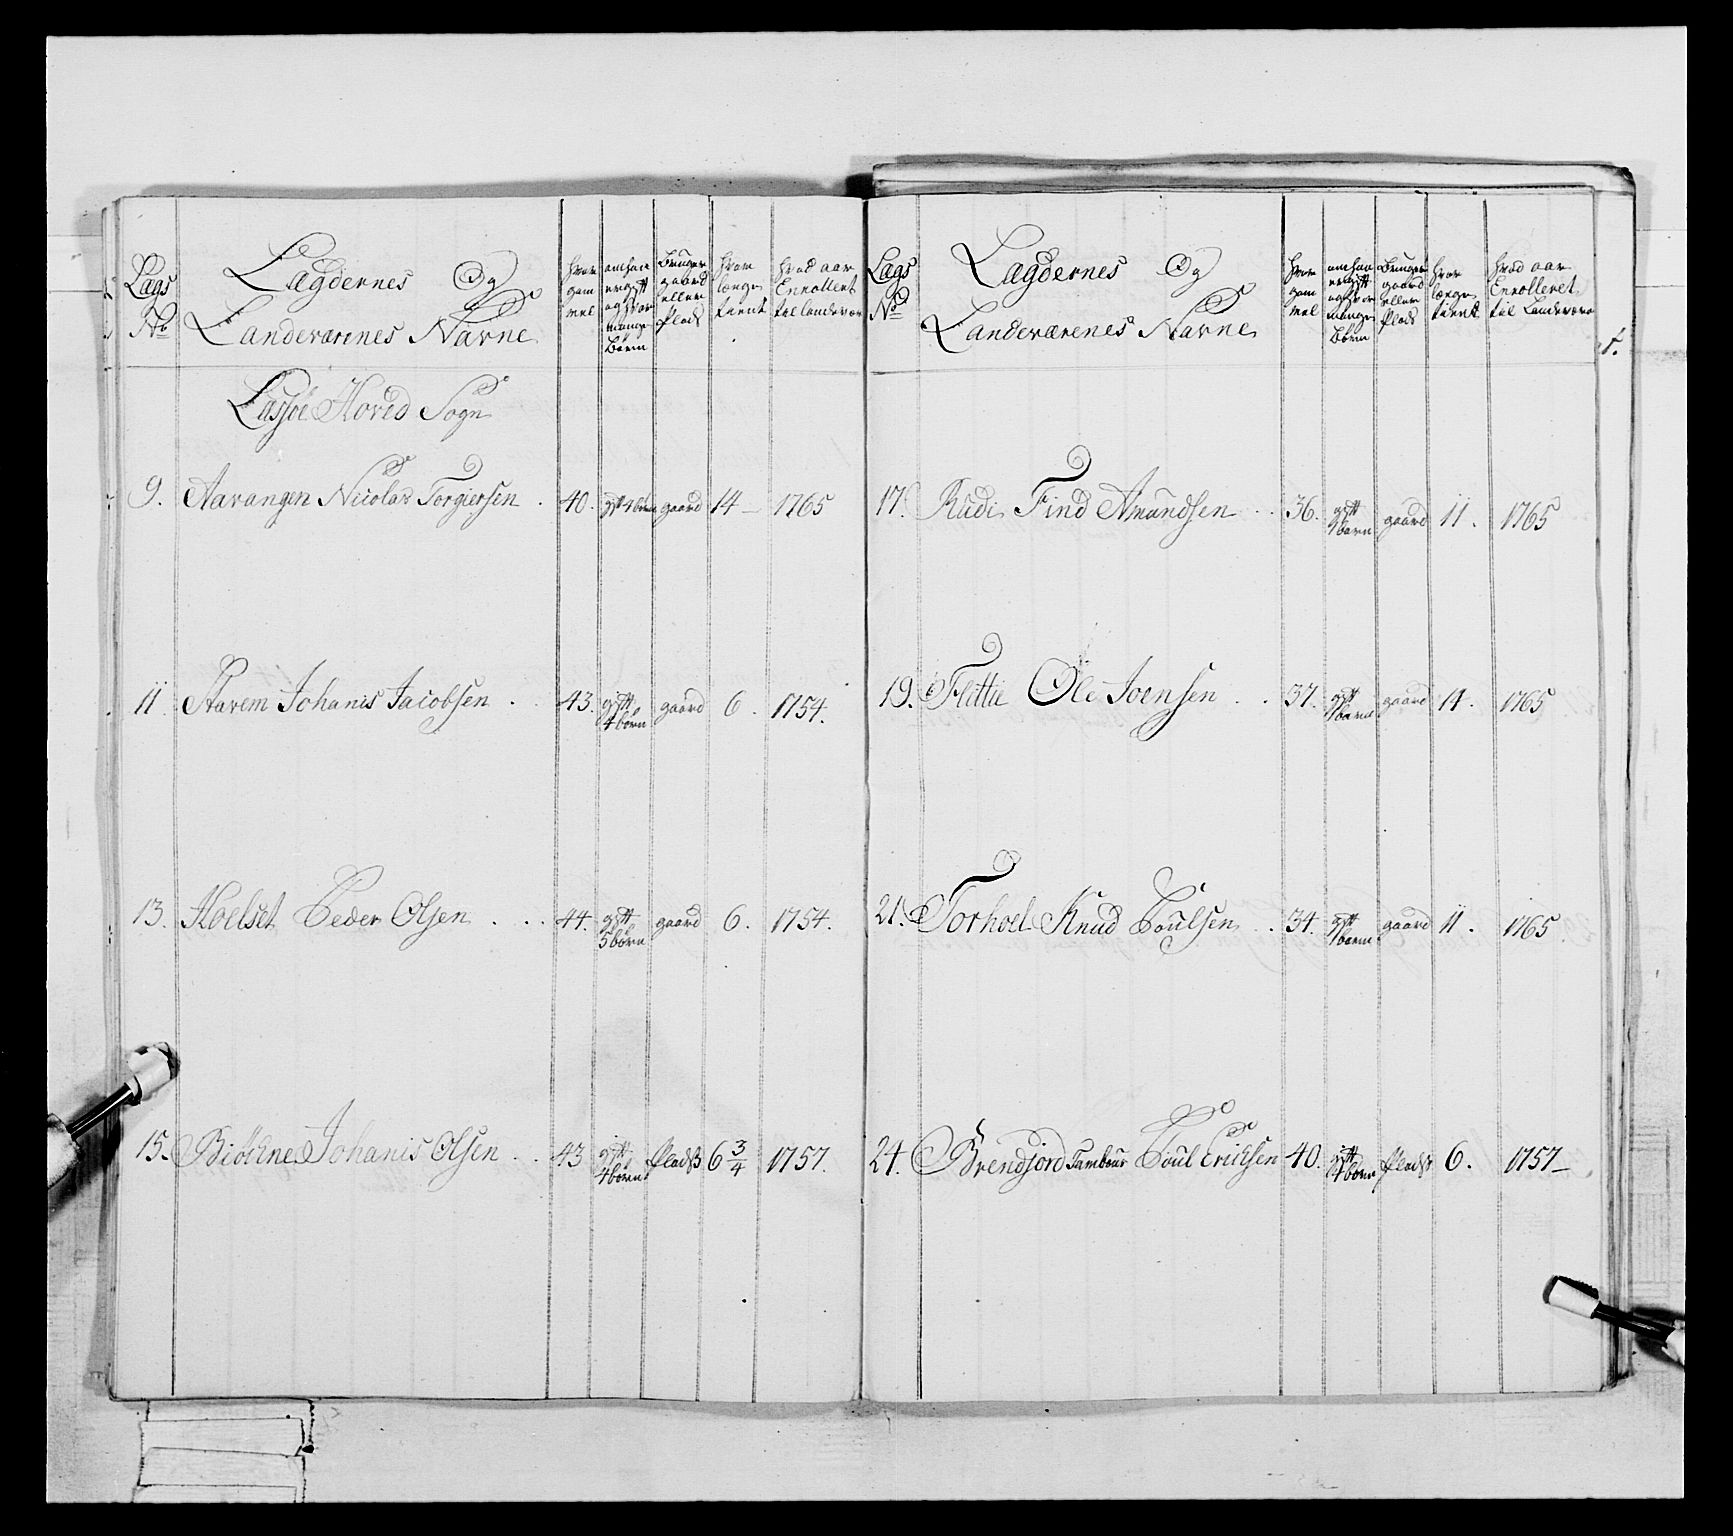 Lægs
No
Lægdernes Og
Landeværenes Navne
hvor
gam
mel
om han
er gift
og hvor
mange
Børn
Bruger
gaard
eller
Plads
hvor
længe
tient
hvad aar
Enrolleret
til landevær
Lassøe Hoved Sogn
9. Aavangen Nicolas Torgiersen . 40. gift 4 børn gaard 14 – 1765
11 Stavem Johanis Jacobsen . . 43. gift
4 børn gaard 6. 1754.
13. Hoelset Peder Olsen . . . 44. gift
5 børn gaard 6. 1754.
15. Biökne Johanis Olsen . . 43 gift
4 børn Pladß 6 3/4 1757.
Lægs
No
Lægdernes Og
Landeværenes Navne
hvor
gam
mel
om han
er gift
og hvor
mange
Børn
Bruger
gaard
eller
Plads
hvor
længe
tient
hvad aar
Enrolleret
til Landevær
17. Rudi Find Amundsen . . 36. gift
1 barn gaard 11. 1765
19. Flittie Ole Joensen . . 37. gift
1 barn gaard 14. 1765
21. Torhoel Knud Poulsen . . 34. gift
1 barn gaard 11. 1765
24. Brendjord Tambour Poul Erichsen 40. gift
4 børn Pladß 6. 1757 –